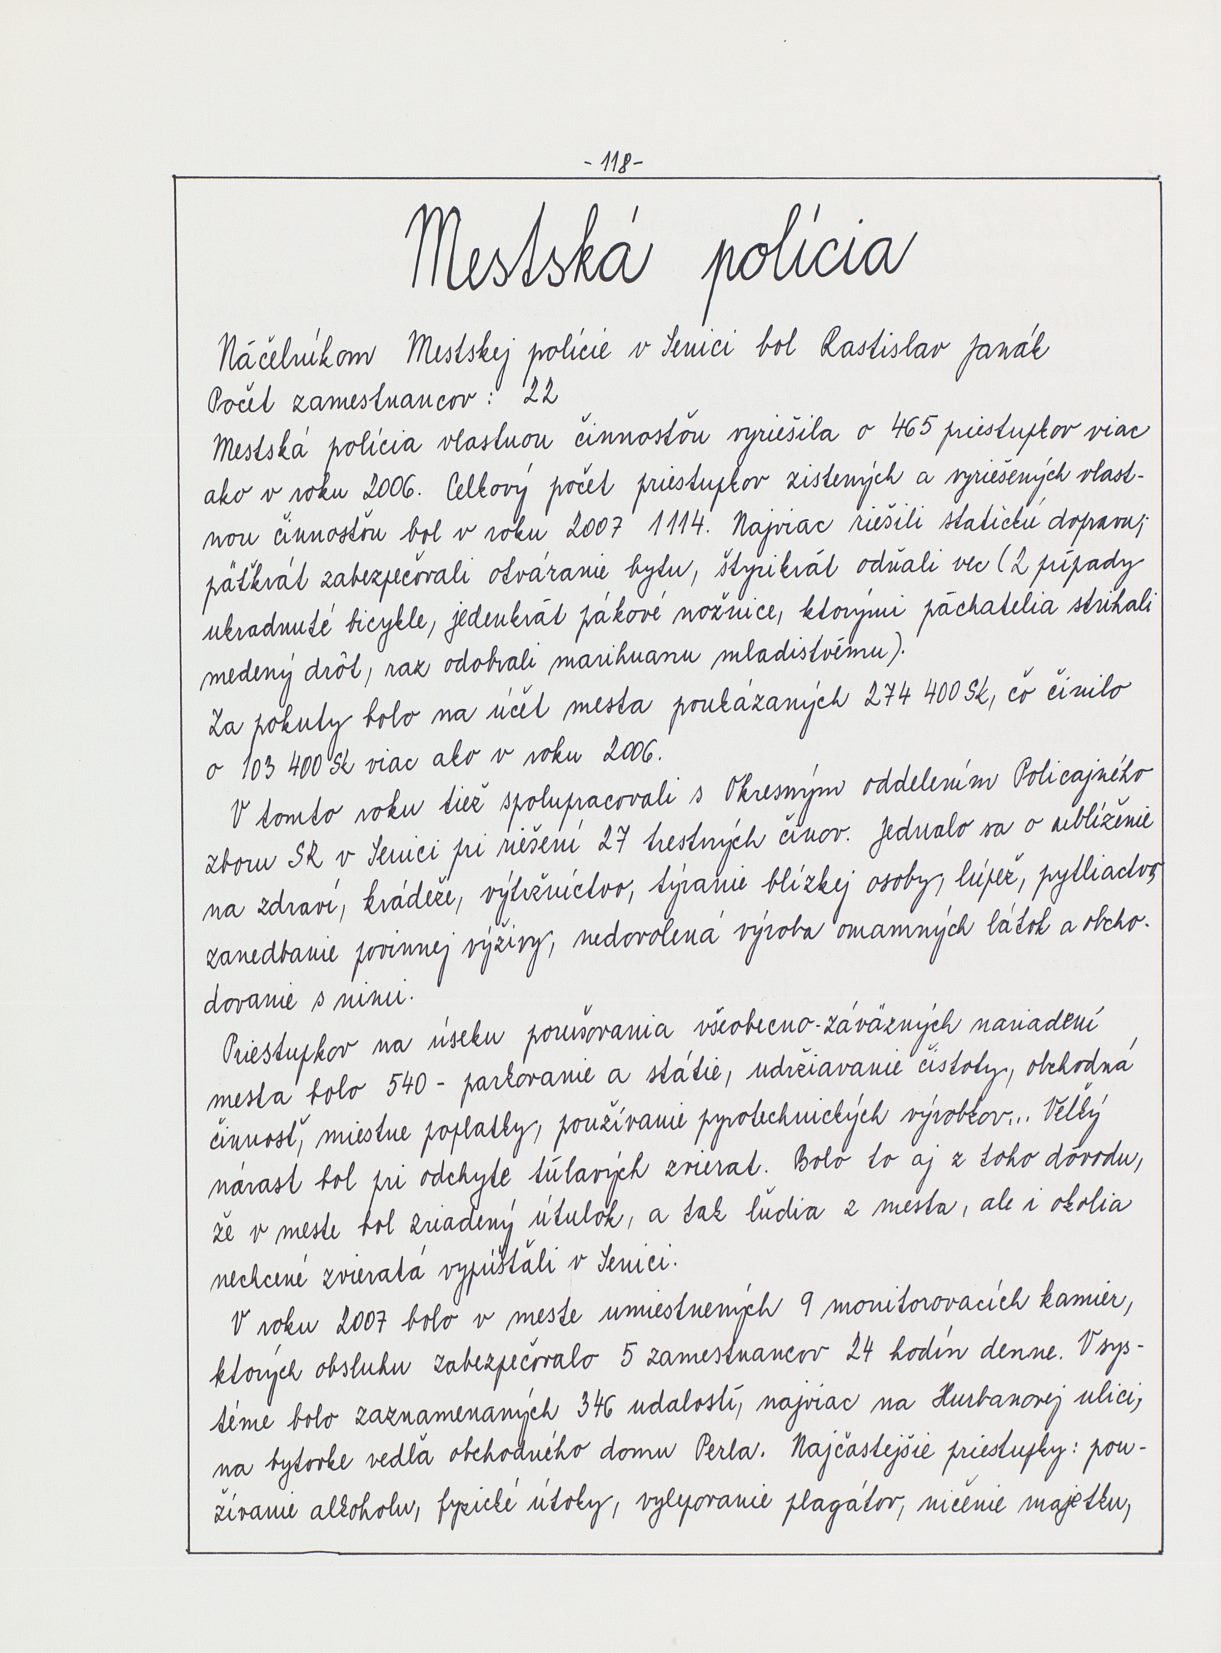 - 118 -
Mestská polícia
Náčelníkom Mestskej polície v Senici bol Rastislav Janák
Počet zamestnancov : 22
Mestská polícia vlastnou činnosťou vyriešila o 465 priestupkov viac
ako v roku 2006. Celkový počet priestupkov zistených a vyriešených vlast-
nou činnosťou bol v roku 2007 1114. Najviac riešili statickú dopravu;
päťkrát zabezpečovali otváranie bytu, štyrikrát odňali vec (2 prípady
ukradnuté bicykle, jedenkrát pákové nožnice, ktorými páchatelia strihali
medený drôt, raz odobrali marihuanu mladistvému).
Za pokuty bolo na účet mesta poukázaných 274 400 Sk, čo činilo
o 103 400 Sk viac ako v roku 2006.
V tomto roku tiež spolupracovali s Okresným oddelením Policajného
zboru SR v Senici pri riešení 27 trestných činov. Jednalo sa o ublíženie
na zdraví, krádeže, výtržníctvo, týranie blízkej osoby, lúpež, pytliactvo,
zanedbanie povinnej výživy, nedovolená výroba omamných látok a obcho-
dovanie s nimi.
Priestupkov na úseku porušovania všeobecno-záväzných nariadení
mesta bolo 540 - parkovanie a státie, udržiavanie čistoty, obchodná
činnosť, miestne poplatky, používanie pyrotechnických výrobkov... Veľký
nárast bol pri odchyte túlavých zvierat. Bolo to aj z toho dôvodu,
že v meste bol zriadený útulok, a tak ľudia z mesta, ale i okolia
nechcené zvieratá vypúšťali v Senici.
V roku 2007 bolo v meste umiestnených 9 monitorovacích kamier,
ktorých obsluhu zabezpečovalo 5 zamestnancov 24 hodín denne. V sys-
téme bolo zaznamenaných 346 udalostí, najviac na Hurbanovej ulici,
na bytovke vedľa obchodného domu Perla. Najčastejšie priestupky: pou-
žívanie alkoholu, fyzické útoky, vylepovanie plagátov, ničenie majetku,